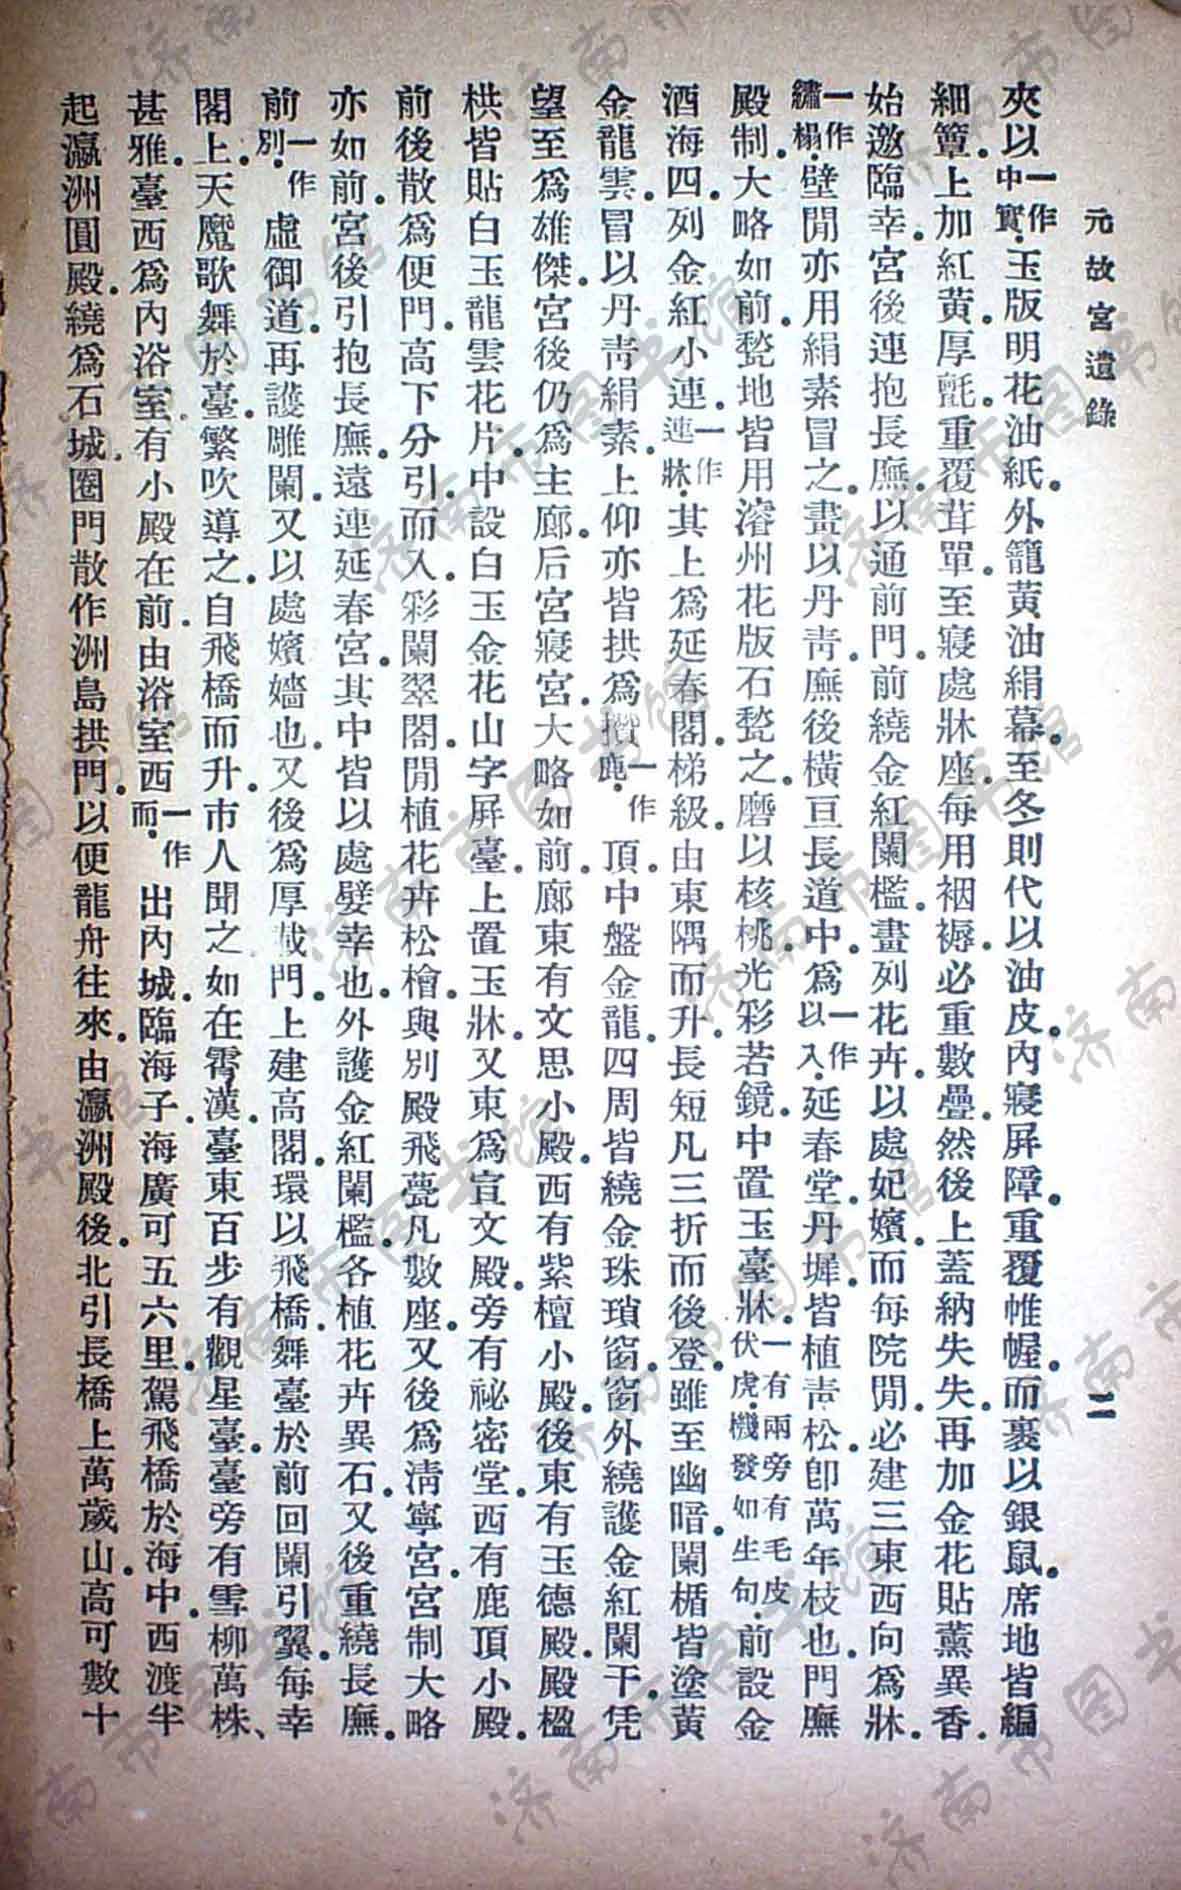 元故宮遺錄
二
夾以一作中實玉版明花油紙外籠黃油絹幕至冬則代以油皮內寢屏障重覆帷幄而裹以銀鼠席地皆編
細簟上加紅黃厚氈重覆茸單至寢處牀座每用裀褥必重數疊然後上蓋納失失再加金花貼薰異香
始邀臨幸宮後連抱長廡以通前門前繞金紅闌檻畫列花卉以處妃嬪而每院閒必建三東西向爲牀
一作繡榻壁閒亦用絹素冒之畫以丹青廡後橫亘長道中爲一作以入延春堂丹墀皆植青松卽萬年枝也門廡
殿制大略如前甃地皆用濬州花版石甃之磨以核桃光彩若鏡中置玉臺牀一有兩旁有毛皮伏虎機發如生句前設金
酒海四列金紅小連一作連牀其上爲延春閣梯級由東隅而升長短凡三折而後登雖至幽暗闌楯皆塗黃
金龍雲冒以丹青絹素上仰亦皆拱爲攢一作鹿頂中盤金龍四周皆繞金珠瑣窗窗外繞護金紅闌干凭
望至爲雄傑宮後仍爲主廊后宮寢宮大略如前廊東有文思小殿西有紫檀小殿後東有玉德殿殿楹
栱皆貼白玉龍雲花片中設白玉金花山字屏臺上置玉牀又東爲宣文殿旁有祕密堂西有鹿頂小殿
前後散爲便門高下分引而入彩闌翠閣閒植花卉松檜與別殿飛甍凡數座又後爲清寧宮宮制大略
亦如前宮後引抱長廡遠連延春宮其中皆以處嬖幸也外護金紅闌檻各植花卉異石又後重繞長廡
前一作別虛御道再護雕闌又以處嬪嬙也又後爲厚載門上建高閣環以飛橋舞臺於前回闌引翼每幸
閣上天魔歌舞於臺繁吹導之自飛橋而升市人聞之如在霄漢臺東百步有觀星臺臺旁有雪柳萬株、
甚雅臺西爲內浴室有小殿在前由浴室西一作而出內城臨海子海廣可五六里駕飛橋於海中西渡半
起瀛洲圓殿繞爲石城圈門散作洲島拱門以便龍舟往來由瀛洲殿後北引長橋上萬歲山高可數十